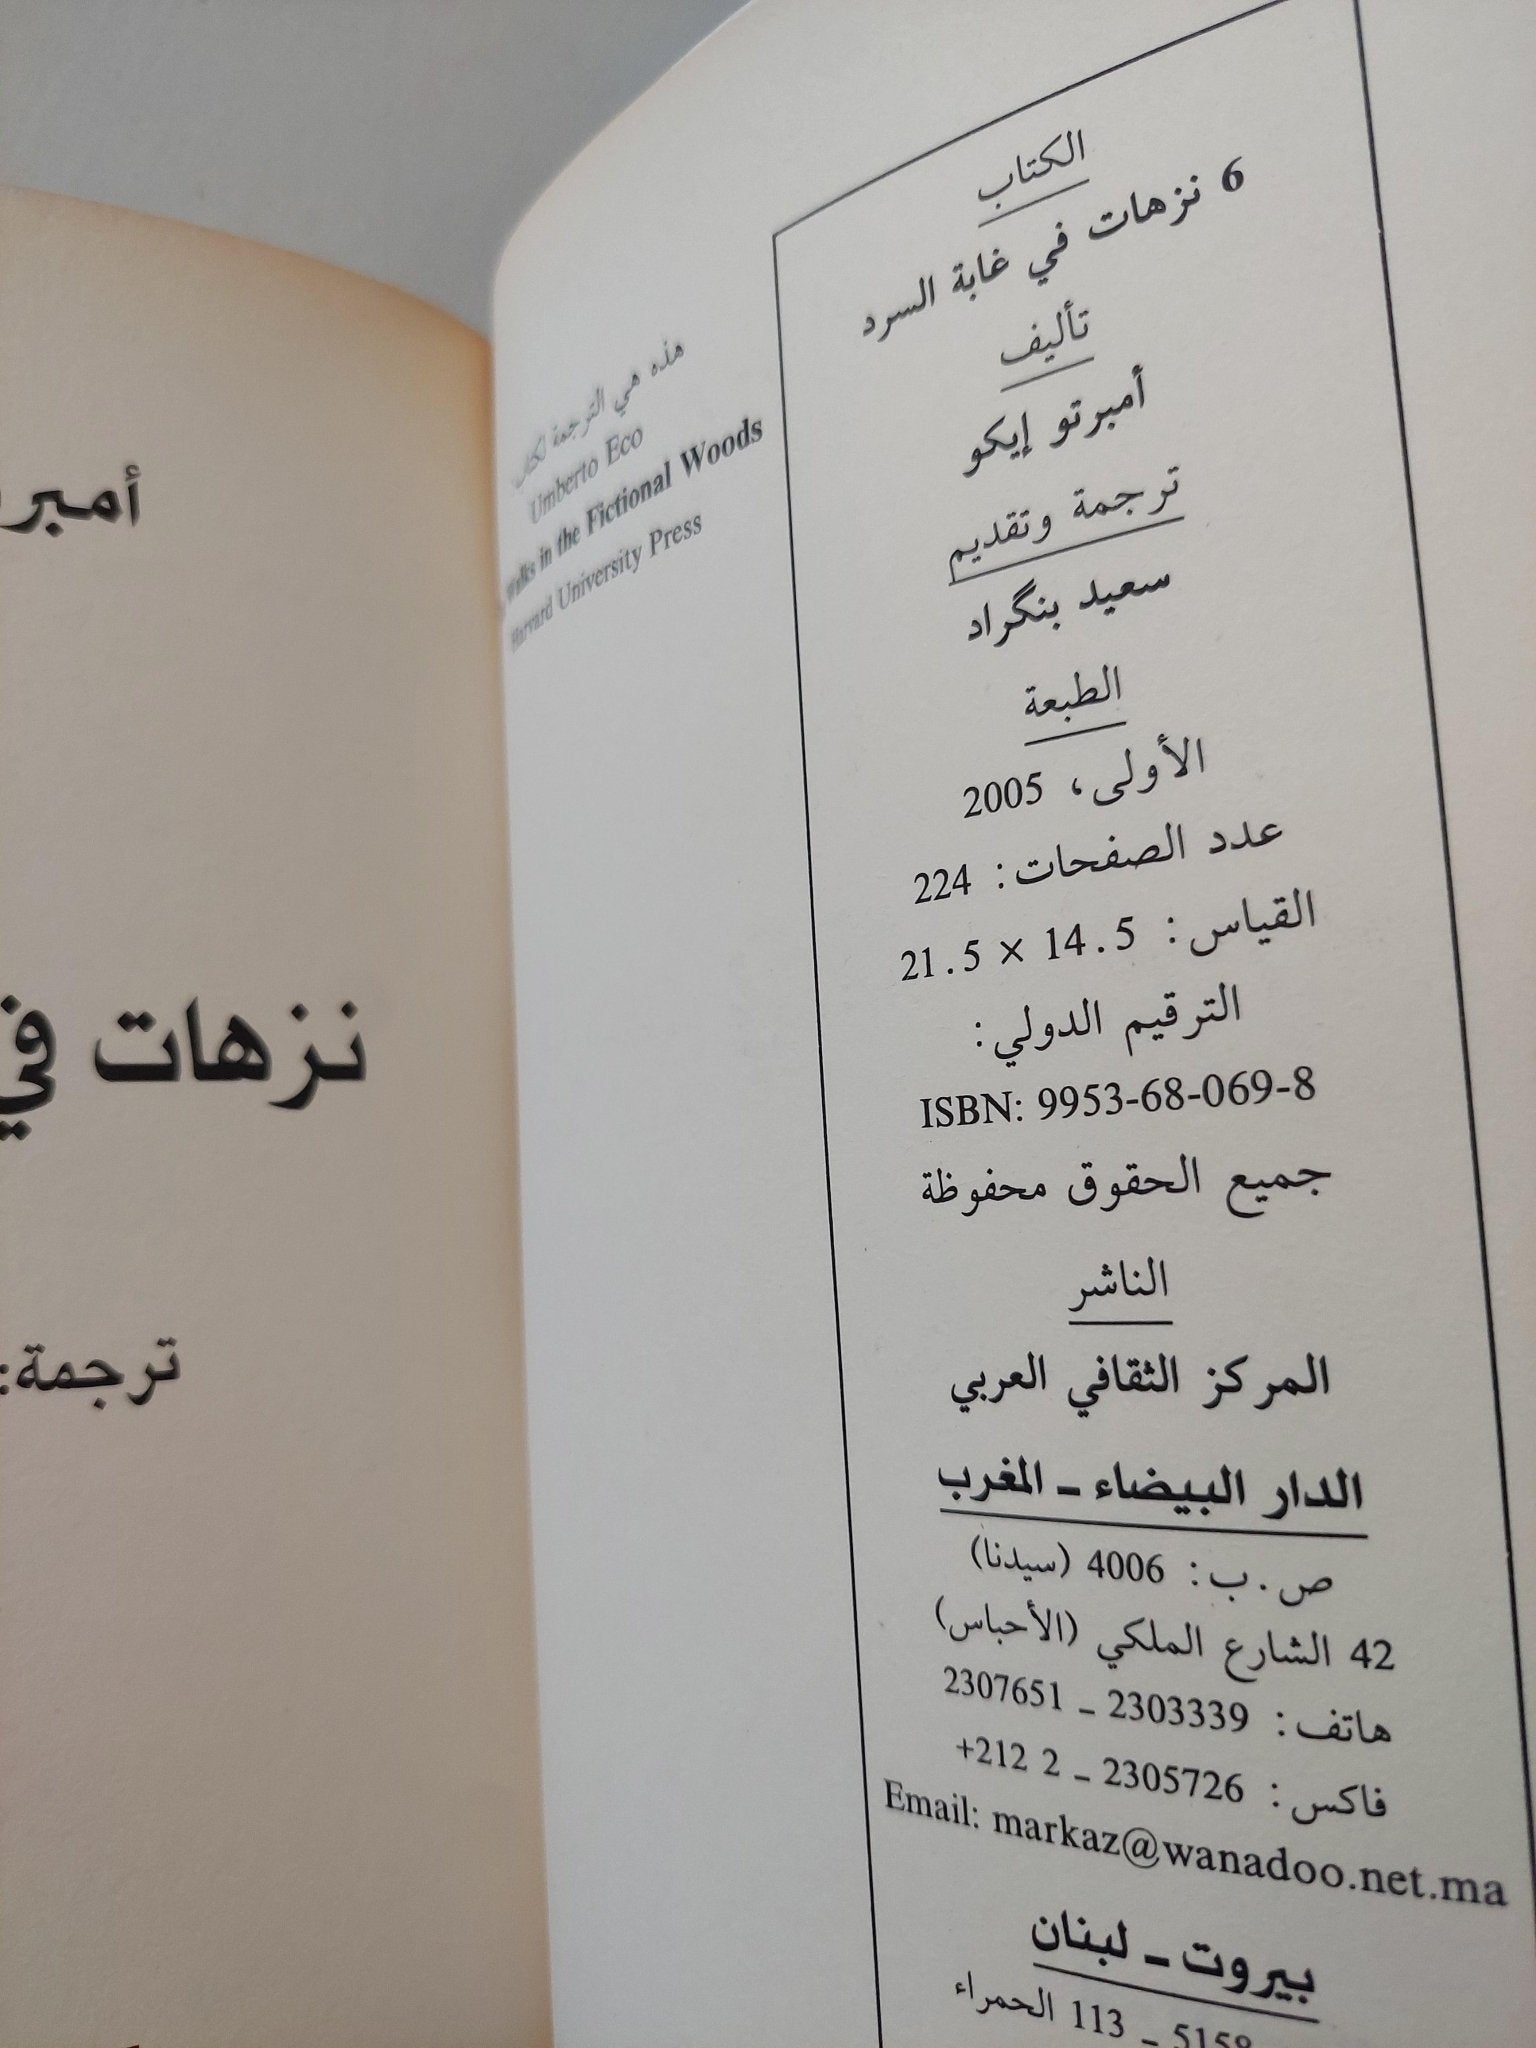 أمبر
نزهات في
ترجمة:
هذه هي الترجمة لكتاب:
Umberto Eco
Walks in the Fictional Woods
Harvard University Press
الكتاب
6 نزهات في غابة السرد
تأليف
أمبرتو إيكو
ترجمة وتقديم
سعيد بنگراد
الطبعة
الأولى، 2005
عدد الصفحات: 224
القياس: 14.5 × 21.5
الترقيم الدولي:
ISBN: 9953-68-069-8
جميع الحقوق محفوظة
الناشر
المركز الثقافي العربي
الدار البيضاء ـ المغرب
ص.ب: 4006 (سيدنا)
42 الشارع الملكي (الأحباس)
هاتف: 2303339 ـ 2307651
فاكس: 2305726 ـ 2 212+
Email: markaz@wanadoo.net.ma
بيروت ـ لبنان
5158 ـ 113 الحمراء